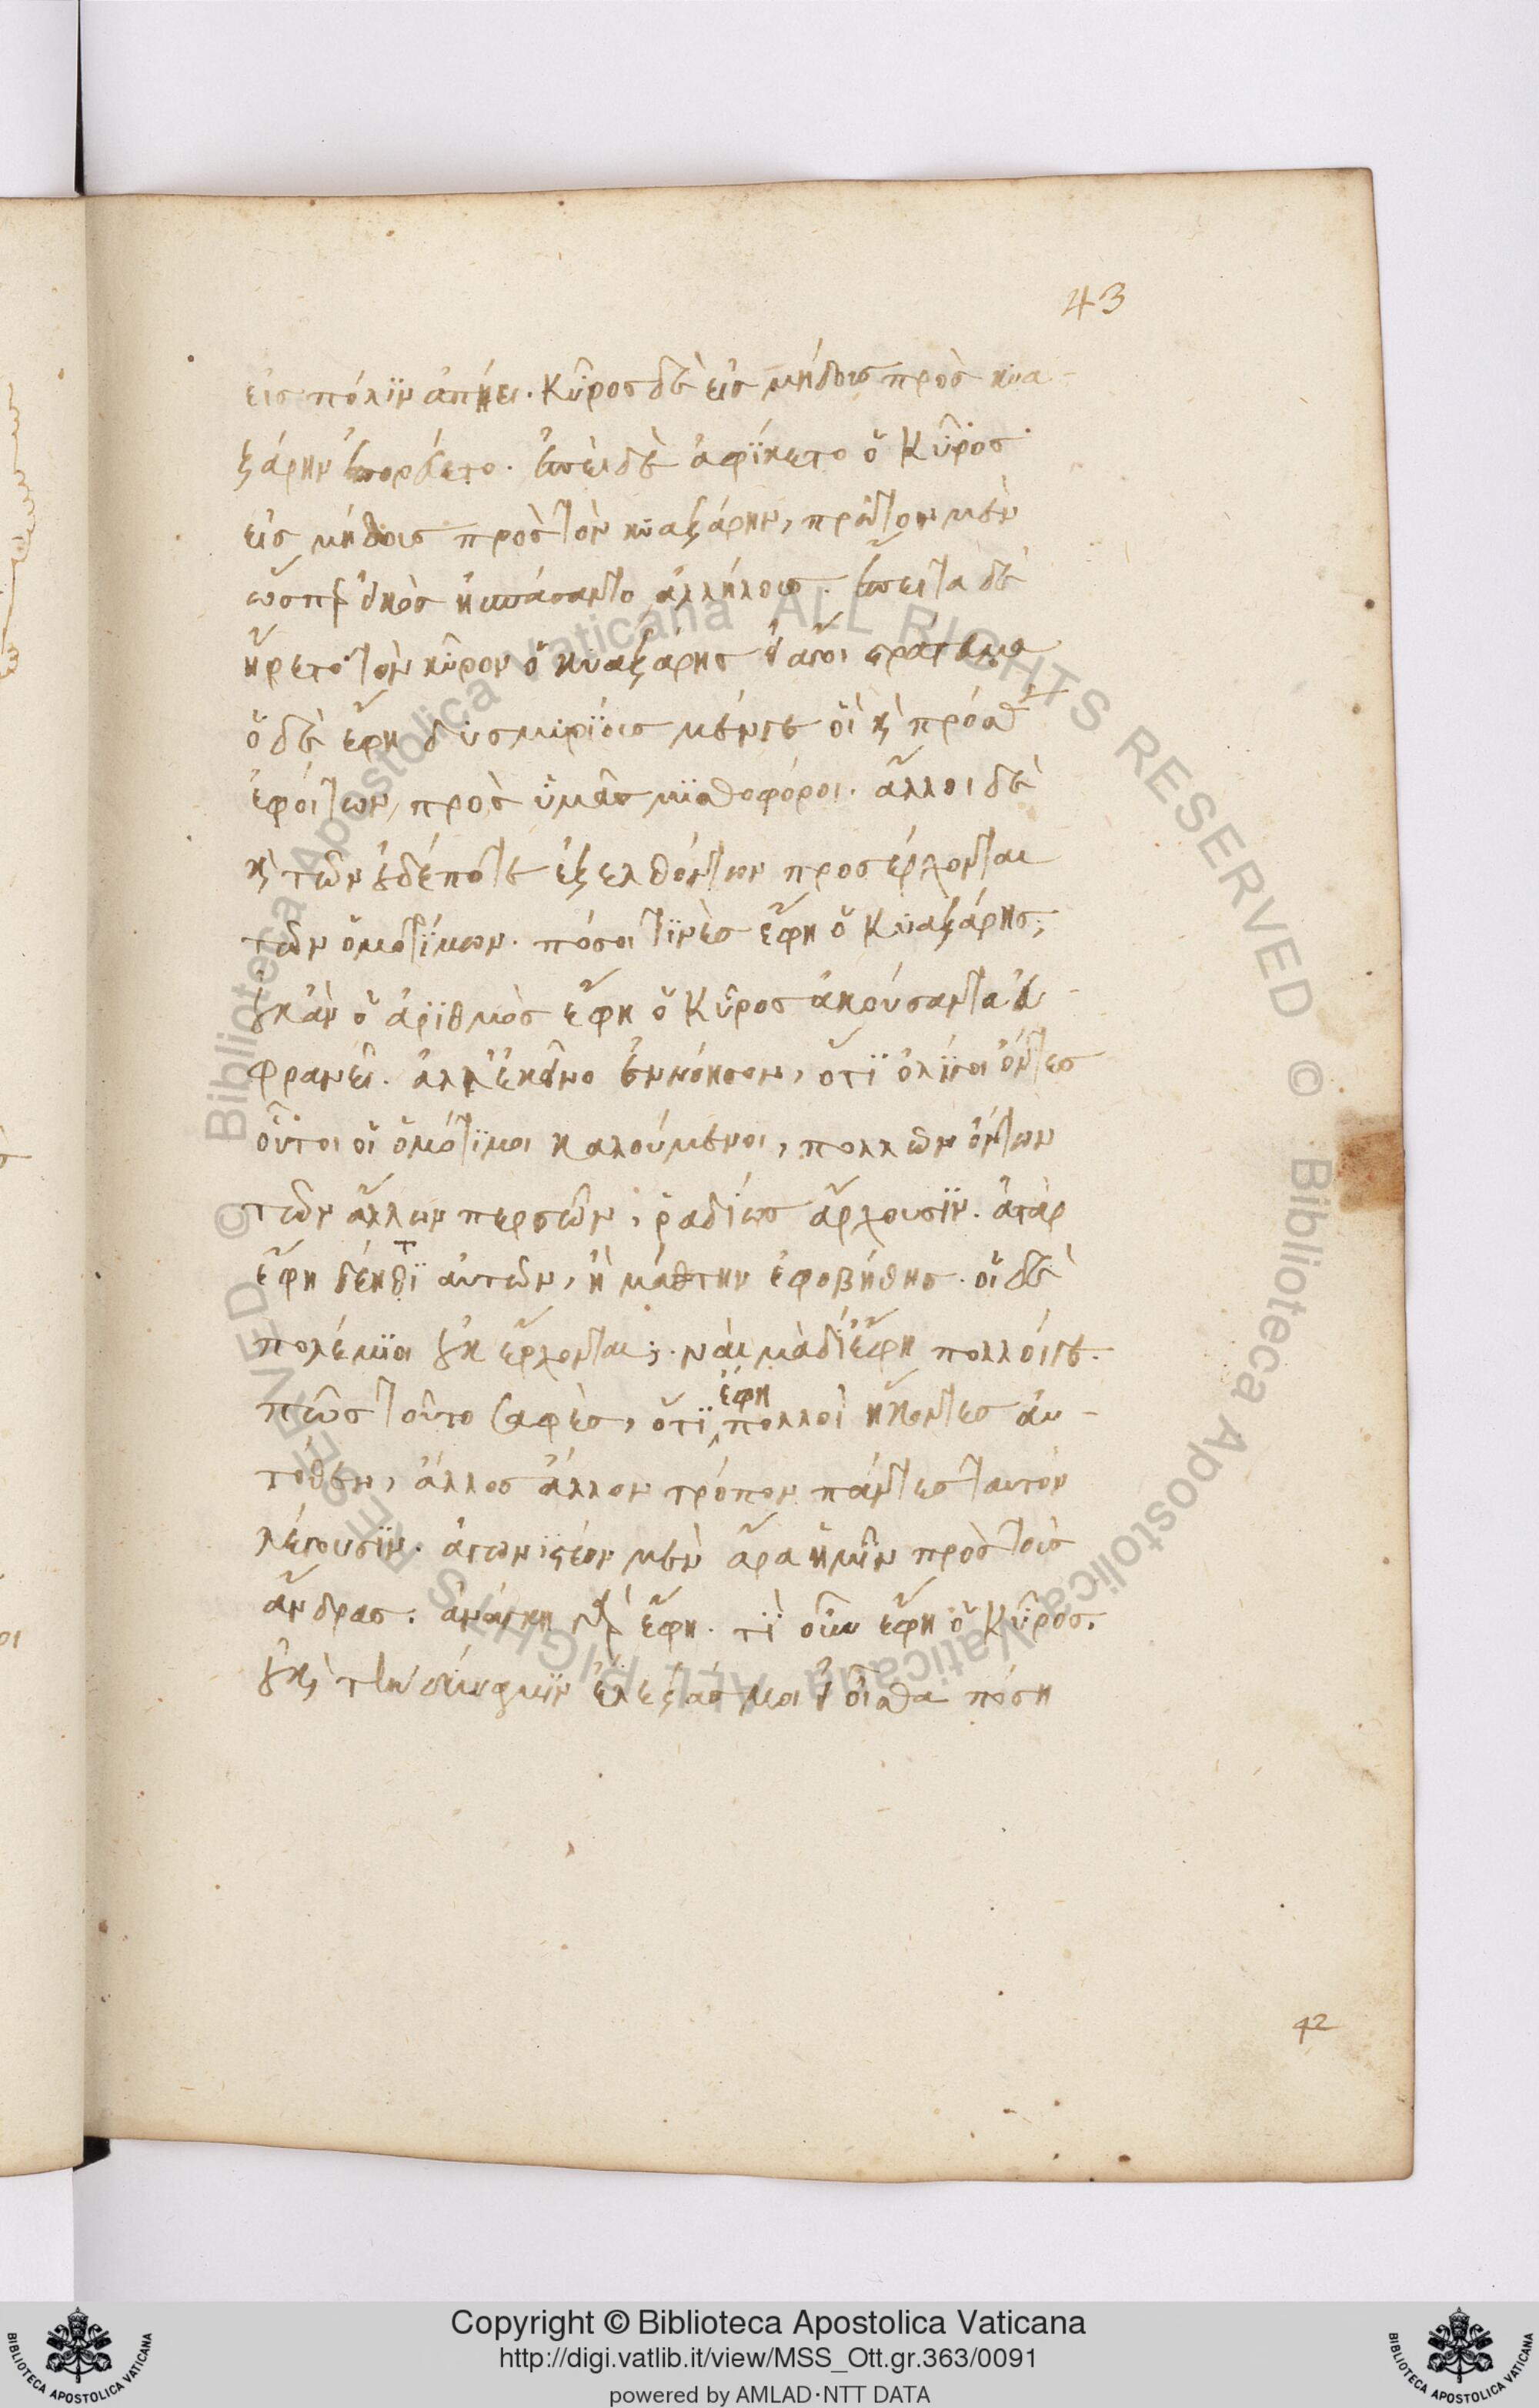 43
εἰς πόλϊν ἀπήει. Κῦρος δὲ εἰς μήδους πρὸς κυα-
ξάρην ἐπορεύετο. ἐπεὶ δὲ ἀφίκετο ὁ Κῦρος
εἰς μήδους πρὸς τὸν κυαξάρην, πρῶτον μὲν
ὥσπερ εἰκὸς ἠσπάσαντο ἀλλήλους. ἔπειτα δὲ
ἤρετο τὸν κῦρον ὁ κυαξάρης
ὁ δὲ ἔφη δϊσμυρίους μέν γε οἳ καὶ πρόσθεν
ἐφοίτων πρὸς ὑμᾶς μϊσθοφόροι. ἄλλοι δὲ
καὶ τῶν οὐδέποτε ἐξελθόντων προσέρχονται
τῶν ὁμοτίμων. πόσοι τϊνὲς ἔφη ὁ Κυαξάρης;
οὐκ ἂν ὁ ἀρϊθμὸς ἔφη ὁ Κῦρος ἀκούσαντα εὐ-
φρανεῖ. ἀλλ' ἐκεῖνο ἐννόησον, ὅτϊ ὀλίγοι ὄντες
οὗτοι οἱ ὁμότϊμοι καλούμενοι, πολλῶν ὄντων
τῶν ἄλλων περσῶν, ῥαδίως ἄρχουσϊν. ἀτὰρ
ἔφη δέῃ τϊ αὐτῶν, ἢ μάτην ἐφοβήθης. οἱ δὲ
πολέμϊοι οὐκ ἔρχονται; ναὶ μὰ δί' ἔφη πολλοί γε.
πῶς τοῦτο σαφὲς, ὅτϊ ἔφη πολλοὶ ἥκοντες αὐ-
τόθεν, ἄλλος ἄλλον τρόπον πάντες ταυτὸν
λέγουσϊν. ἀγωνϊστέον μὲν ἄρα ἡμῖν πρὸς τοὺς
ἄνδρας. ἀνάγκη γὰρ ἔφη. τϊ οὖν ἔφη ὁ Κῦρος.
οὐ καὶ τὴν δύναμϊν ἔλεξάς μοι εἰ οἶσθα πόση
42
Copyright © Biblioteca Apostolica Vaticana
http://digi.vatlib.it/view/MSS_Ott.gr.363/0091
powered by AMLAD·NTT DATA